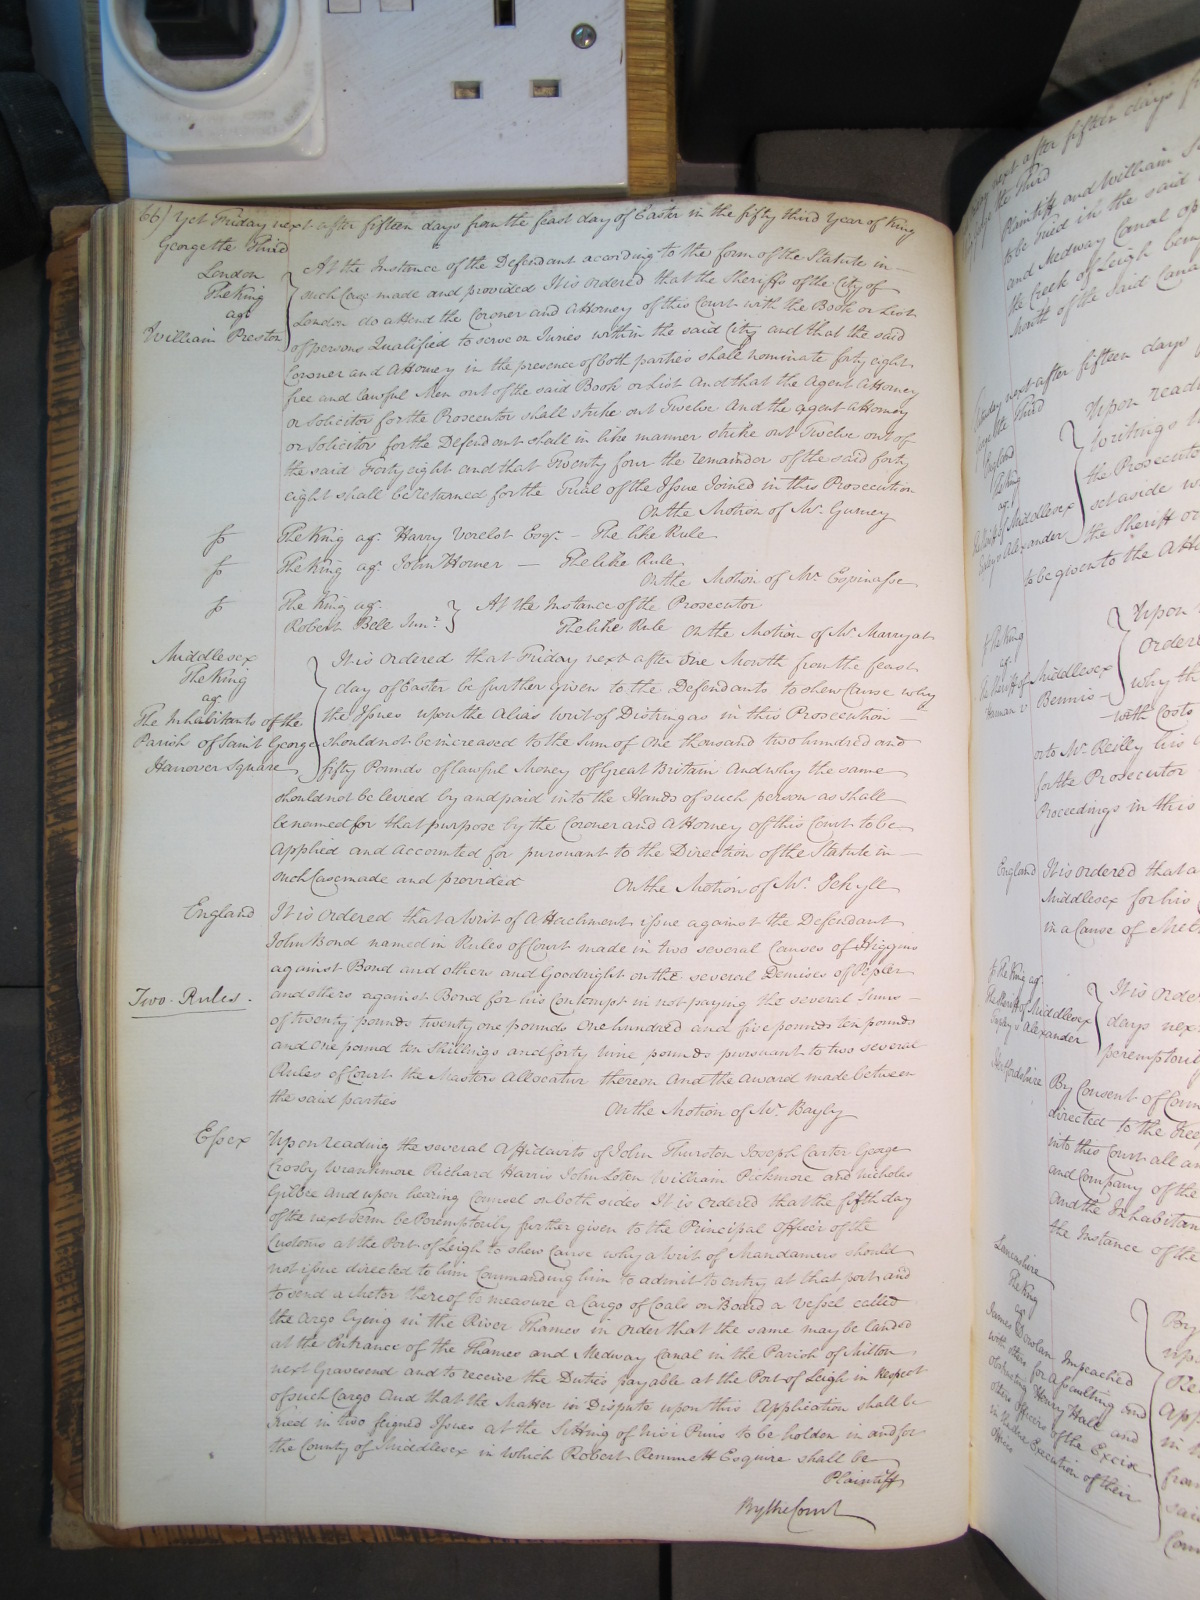 66) Yet Friday next after fifteen days from the feast day of Easter in the fifty third Year of King
George the Third
London
The King
agt
William Preston
At the Instance of the Defendant according to the form of the Statute in
such Case made and provided It is ordered that the Sheriffs of the City of
London do attend the Coroner and Attorney of this Court with the Book or List
of persons Qualified to serve on Juries within the said City and that the said
Coroner and Attorney in the presence of both parties shall nominate forty eight
free and lawful Men out of the said Book or List And that the Agent Attorney
or Solicitor for the Prosecutor shall strike out Twelve And the agent Attorney
or Solicitor for the Defendant shall in like manner strike out Twelve out of
the said Forty eight and that Twenty four the remainder of the said forty
eight shall be returned for the Trial of the Issue Joined in this Prosecution
On the Motion of Mr. Gurney
The King agt. Harry Verelst Esqr. – The like Rule
The King agt. John Horner — The like Rule
On the Motion of Mr. Espinasse
The King agt.
Robert Bell Junr.
At the Instance of the Prosecutor
The like Rule On the Motion of Mr. Marryat
Middlesex
The King
agt.
The Inhabitants of the
Parish of Saint George
Hanover Square
It is ordered that Friday next after One Month from the feast
day of Easter be further given to the Defendants to shew Cause why
the Issues upon the Alias Writ of Distringas in this Prosecution
should not be increased to the Sum of One thousand two hundred and
fifty Pounds of lawful Money of Great Britain And why the same
should not be levied by and paid into the Hands of such person as shall
be named for that purpose by the Coroner and Attorney of this Court to be
Applied and accounted for pursuant to the Direction of the Statute in
such Case made and provided
On the Motion of Mr. Jekyll
England
It is ordered that a Writ of Attachment issue against the Defendant
John Bond named in Rules of Court made in two several Causes of Higgins
against Bond and others and Goodright on the several Demises of Pepler
Two Rules.
and others against Bond for his Contempt in not paying the several Sums
of twenty pounds twenty one pounds One hundred and five pounds ten pounds
and One pound ten Shillings and forty nine pounds pursuant to two several
Rules of Court the Masters Allocatur thereon And the Award made between
the said parties
On the Motion of Mr. Bayly
Essex
Upon reading the several Affidavits of John Thurston Joseph Carter George
Crosby Richard Harris John William Pickmore and Nicholas
Gilbee and upon hearing Counsel on both sides It is ordered that the fifth day
of the next Term be Peremptorily further given to the Principal Officer of the
Customs at the Port of Leigh to shew Cause why a Writ of Mandamus should
not issue directed to him Commanding him to admit to entry at that port and
to send a Meter thereof to measure a Cargo of Coals on Board a Vessel called
the Argo lying in the River Thames in Order that the same may be landed
at the Entrance of the Thames and Medway Canal in the Parish of Milton
next Gravesend and to receive the Duties payable at the Port of Leigh in Respect
of such Cargo And that the Matter in Dispute upon this Application shall be
tried in two feigned Issues at the Sitting of Nisi Prius to be holden in and for
the County of Middlesex in which Robert Esquire shall be
Plaintiff
By the Court
next after fifteen days
the Third
Plaintiff and William
to be tried in the said
and Medway Canal
the Creek of Leigh
North of the said Canal
next after fifteen days
the Third
England
Upon read
Writings
the Prosecutor
set aside
the Sheriff or
to be given to the Att
The King
agt.
The Sheriff of Middlesex
Bennis
Upon
Ordered
why th
with Costs
or to Mr. Reilly his
for the Prosecutor
Proceedings in this
England
It is ordered that a
Middlesex for his
in a Cause of
The King agt.
The Sheriff of Middlesex
Alexander
It is orde
days nex
peremptorily
Hertfordshire
By Consent of Coun
directed to the
into this Court all an
and Company of the
And the Inhabitan
the Instance of the
Lancashire
The King
agt.
James Dowlan Impeached
with others for Assaulting and
obstructing Henry Hall and
others Officers of the Excise
in the due Execution of their
Office